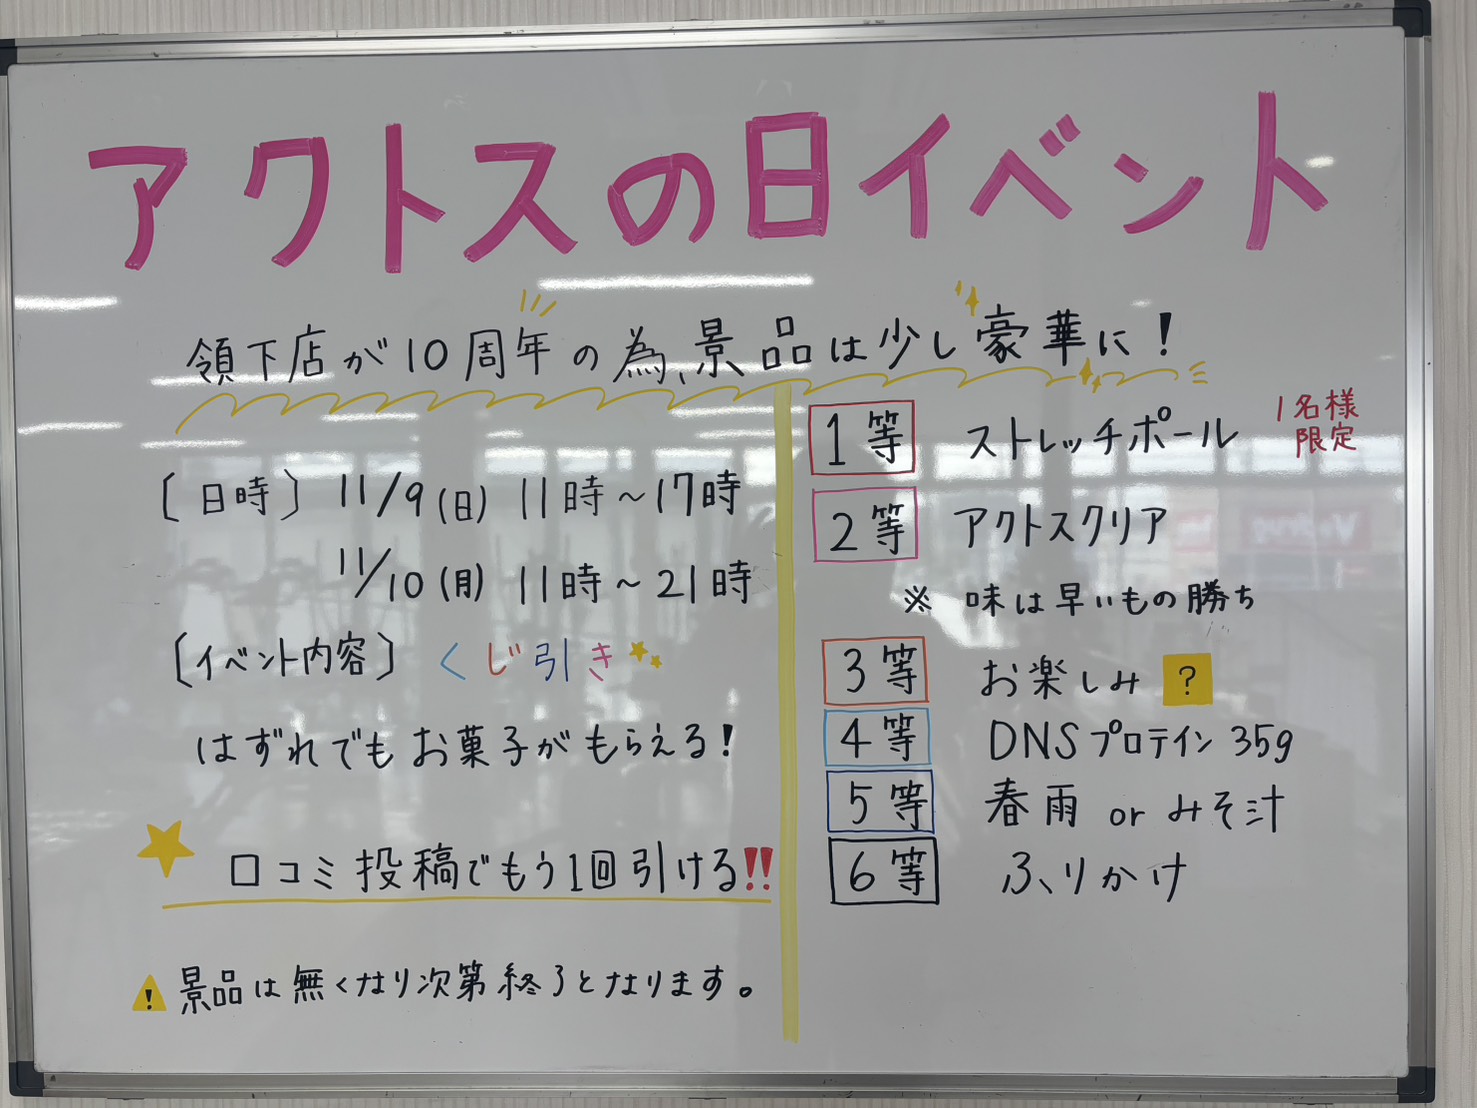 アクトスの日イベント
領下店が10周年の為、景品は少し豪華に！
〔日時〕 11/9(日) 11時～17時
11/10(月) 11時～21時
〔イベント内容〕 くじ引き
はずれでもお菓子がもらえる！
口コミ投稿でもう1回引ける!!
景品は無くなり次第終了となります。
1等 ストレッチポール 1名様
限定
2等 アクトスクリア
※ 味は早いもの勝ち
3等 お楽しみ ?
4等 DNSプロテイン 35g
5等 春雨 or みそ汁
6等 ふりかけ